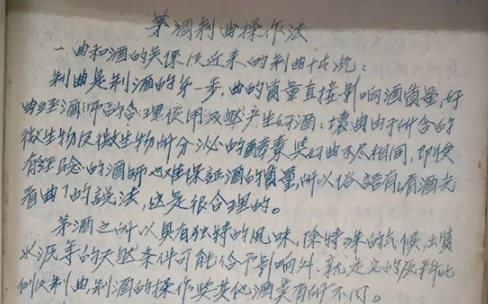 茅酒制曲操作法
一、曲和酒的关系及近来的制曲情况：
制曲是制酒的第一步，曲的質量直接影响酒質量，好
曲经酒师的合理使用就能产生好酒；壞曲由于所含的
微生物及微生物所分泌的酵素与好曲不尽相同，即使
有经验的酒师也难保証酒的質量，所以俗語有“看酒先
看曲”的說法，这是很合理的。
茅酒之所以具有独特的風味，除特殊的气候，土質
水源等的天然条件可能给予影响外，就是它的原料比
例及制曲制酒的操作与其他酒类有所不同。